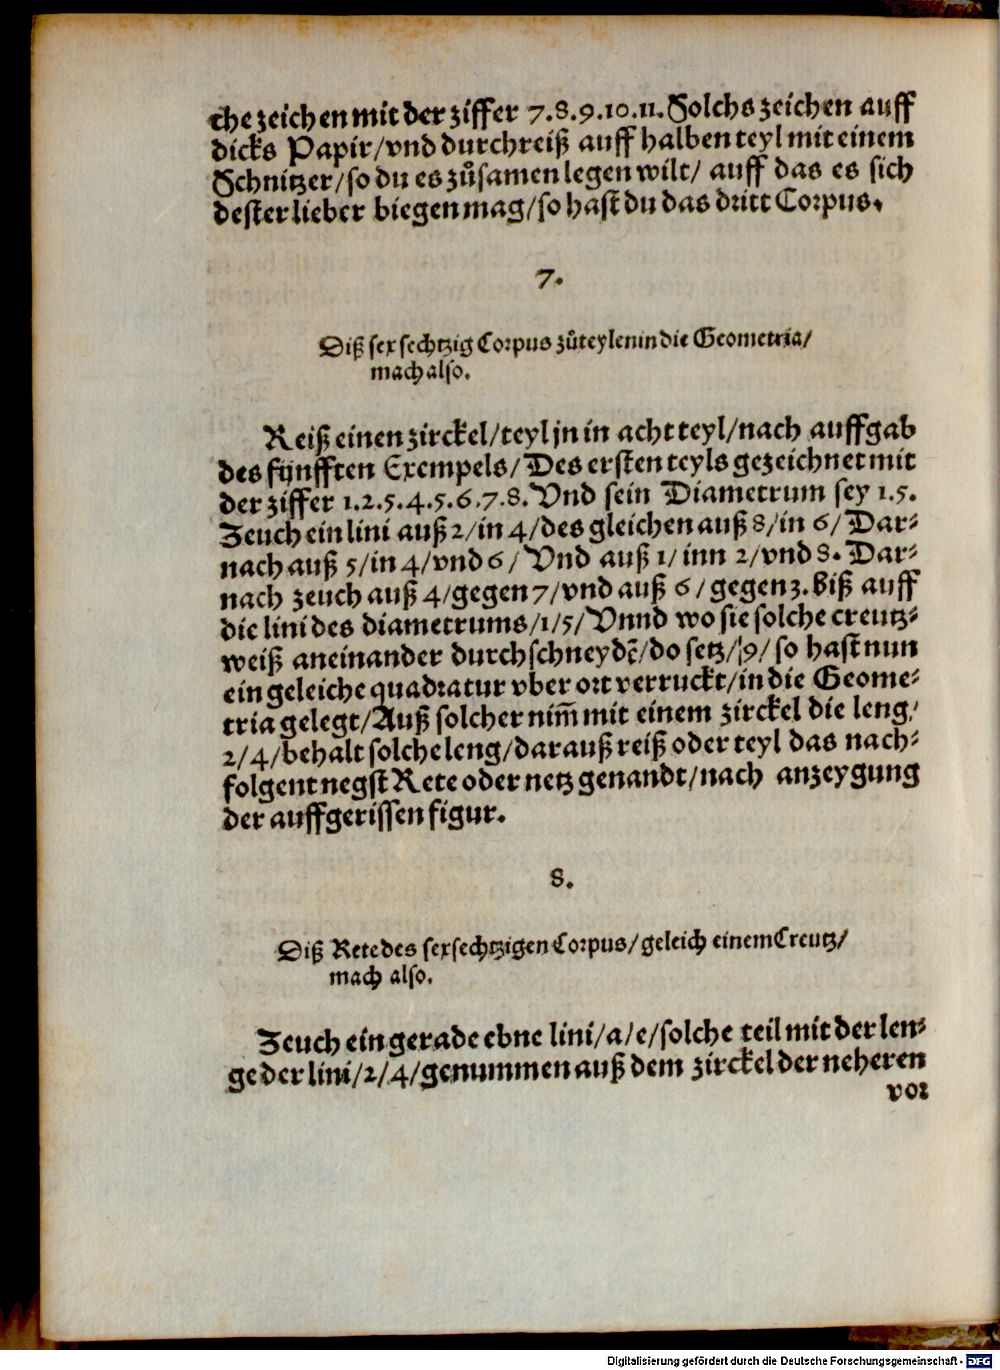 che zeichen mit der ziffer 7.8.9.10.11. Solchs zeichen auff
dicks Papir/vnd durchreiß auff halben teyl mit einem
Schnitzer/so du es zůsamen legen wilt/ auff das es sich
dester lieber biegen mag/so hast du das dritt Corpus.
7.
Diß sexsechtzig Corpus zůteylen in die Geometria/
mach also.
Reiß einen zirckel/teyl jn in acht teyl/nach auffgab
des fünfften Exempels/Des ersten teyls gezeichnet mit
der ziffer 1.2.5.4.5.6.7.8. Vnd sein Diametrum sey 1.5.
Zeuch ein lini auß 2/in 4/des gleichen auß 8/in 6/ Dar-
nach auß 5/in 4/vnd 6/ Vnd auß 1/ inn 2/vnd 8. Dar-
nach zeuch auß 4/gegen 7/vnd auß 6/ gegen 3. biß auff
die lini des diametrums/1/5/ Vnnd wo sie solche creutz-
weiß aneinander durchschneydẽ/do setz/9/ so hast nun
ein geleiche quadratur vber ort verruckt/in die Geome-
tria gelegt/Auß solcher nim̃ mit einem zirckel die leng/
2/4/behalt solche leng/darauß reiß oder teyl das nach-
folgent negst Rete oder netz genandt/nach anzeygung
der auffgerissen figur.
8.
Diß Rete des sexsechtzigen Corpus/geleich einem Creutz/
mach also.
Zeuch ein gerade ebne lini/a/e/solche teil mit der len-
ge der lini/2/4/genummen auß dem zirckel der neheren
vor
Digitalisierung gefördert durch die Deutsche Forschungsgemeinschaft - DFG